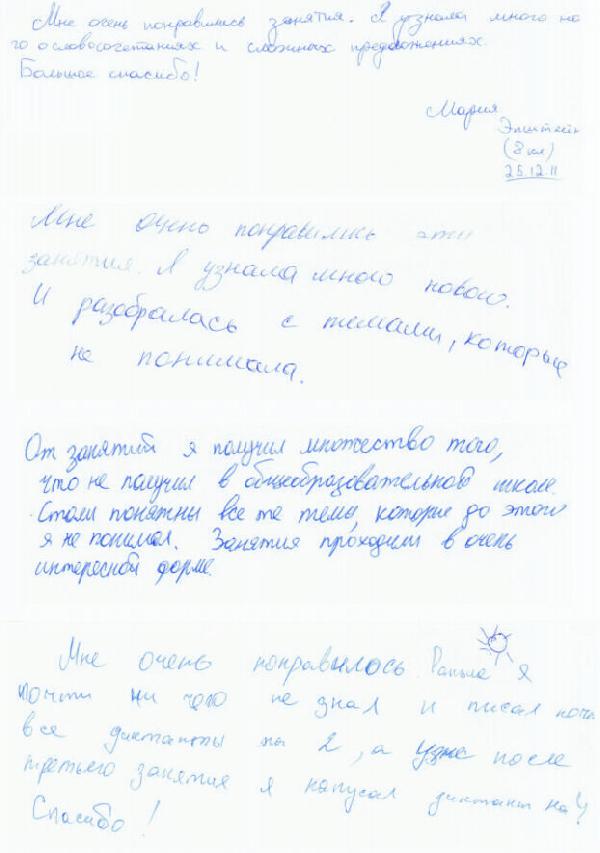 Мне очень понравились занятия. Я узнала много но
го о словосочетаниях и сложных предложениях.
Большое спасибо!
Мария
Эпштейн
(8 кл)
25.12.11
Мне очень понравились эти
занятия. Я узнала много нового.
И разобралась с темами, которые
не понимала.
От занятий я получил множество того,
что не получил в общеобразовательной школе.
Стали понятны все те темы, которые до этого
я не понимал. Занятия проходили в очень
интересной форме.
Мне очень понравилось. Раньше я
почти ни чего не знал и писал почти
все диктанты на 2, а уже после
третьего занятия я написал диктант на 4
Спасибо!